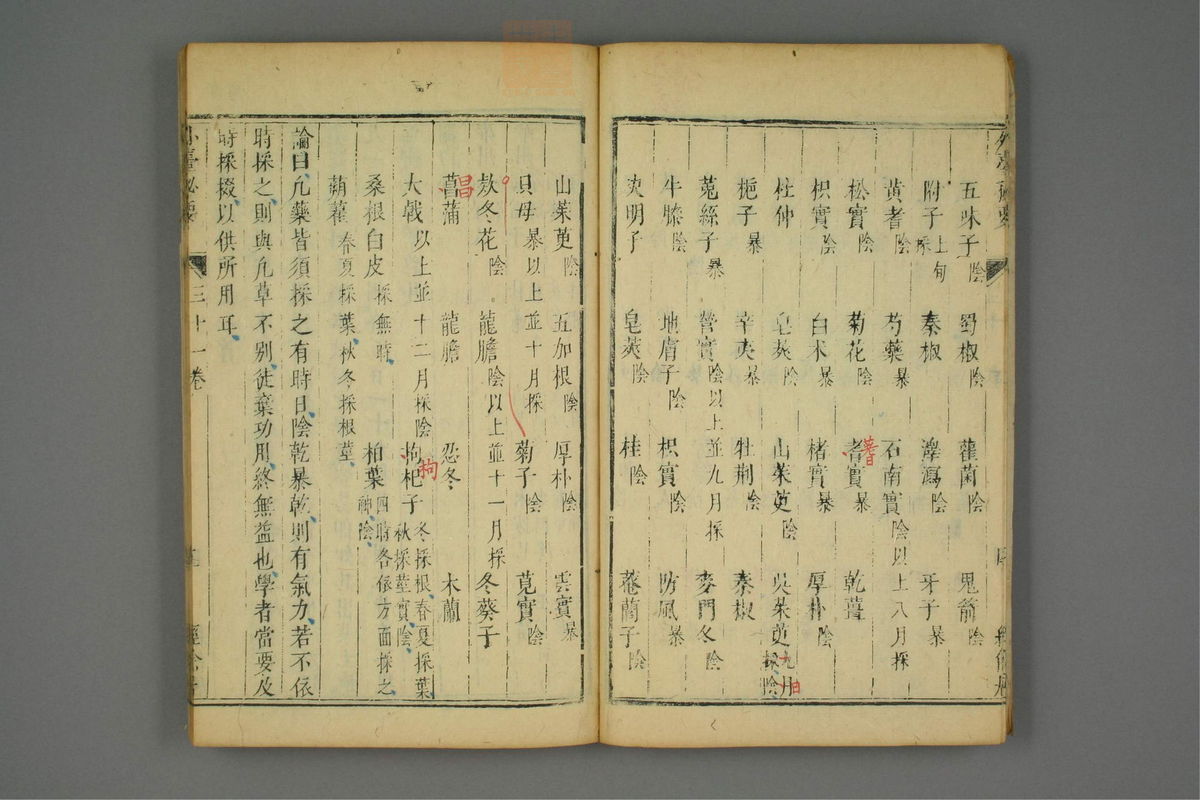 五味子陰 蜀椒陰 雚菌陰 鬼箭陰
附子上旬採 秦椒 澤瀉陰 牙子暴
黃耆陰 芍藥暴 石南實陰以上八月採
松實陰 菊花陰 耆實暴 乾薑
蓍
枳實陰 白朮暴 楮實暴 厚朴陰
杜仲 皂莢陰 山茱萸陰 吳茱萸九月九日採陰
梔子暴 辛夷暴 牡荆陰 秦椒
菟絲子暴 營實陰以上並九月採 麥門冬陰
牛膝陰 地膚子陰 枳實陰 防風暴
決明子 皂莢陰 桂陰 菴䕡子陰
山茱萸陰 五加根陰 厚朴陰 雲實暴
貝母暴以上並十月採 菊子陰 莧實陰
款冬花陰 龍膽陰以上並十一月採 冬葵子
菖蒲 龍膽 忍冬 木蘭
昌
大戟以上並十二月採陰 拘杞子冬採根、春夏採葉、秋採莖實、陰、
枸
桑根白皮採無時、 柏葉四時各依方面採之、神、陰、
蒴藋春夏採葉、秋冬採根莖、
論曰、凡藥皆須採之有時日、陰乾暴乾、則有氣力、若不依
時採之、則與凡草不别、徒棄功用、終無益也、學者當要及
時採掇、以供所用耳、
三十一卷